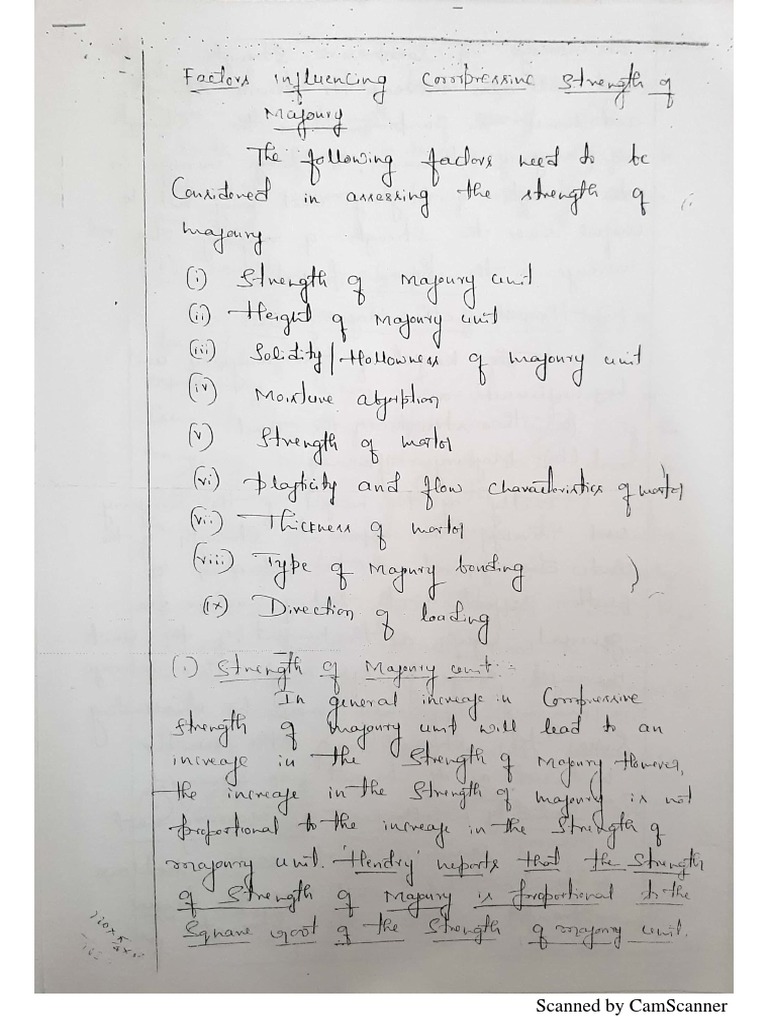 Factors influencing Compressive Strength of
Masonry
The following factors need to be
Considered in assessing the strength of
masonry
(i) Strength of Masonry unit
(ii) Height of Masonry unit
(iii) Solidity/Hollowness of masonry unit
(iv) Moisture absorption
(v) Strength of mortor
(vi) Plasticity and flow characteristics of mortor
(vii) Thickness of mortor
(viii) Type of Masonry bonding
(ix) Direction of loading
(i) Strength of Masonry unit :-
In general increase in Compressive
strength of masonry unit will lead to an
increase in the Strength of Masonry However,
the increase in the Strength of masonry is not
proportional to the increase in the Strength of
masonry unit. 'Hendry' reports that the Strength
of Strength of Masonry is proportional to the
Square root of the Strength of masonry unit.
Scanned by CamScanner